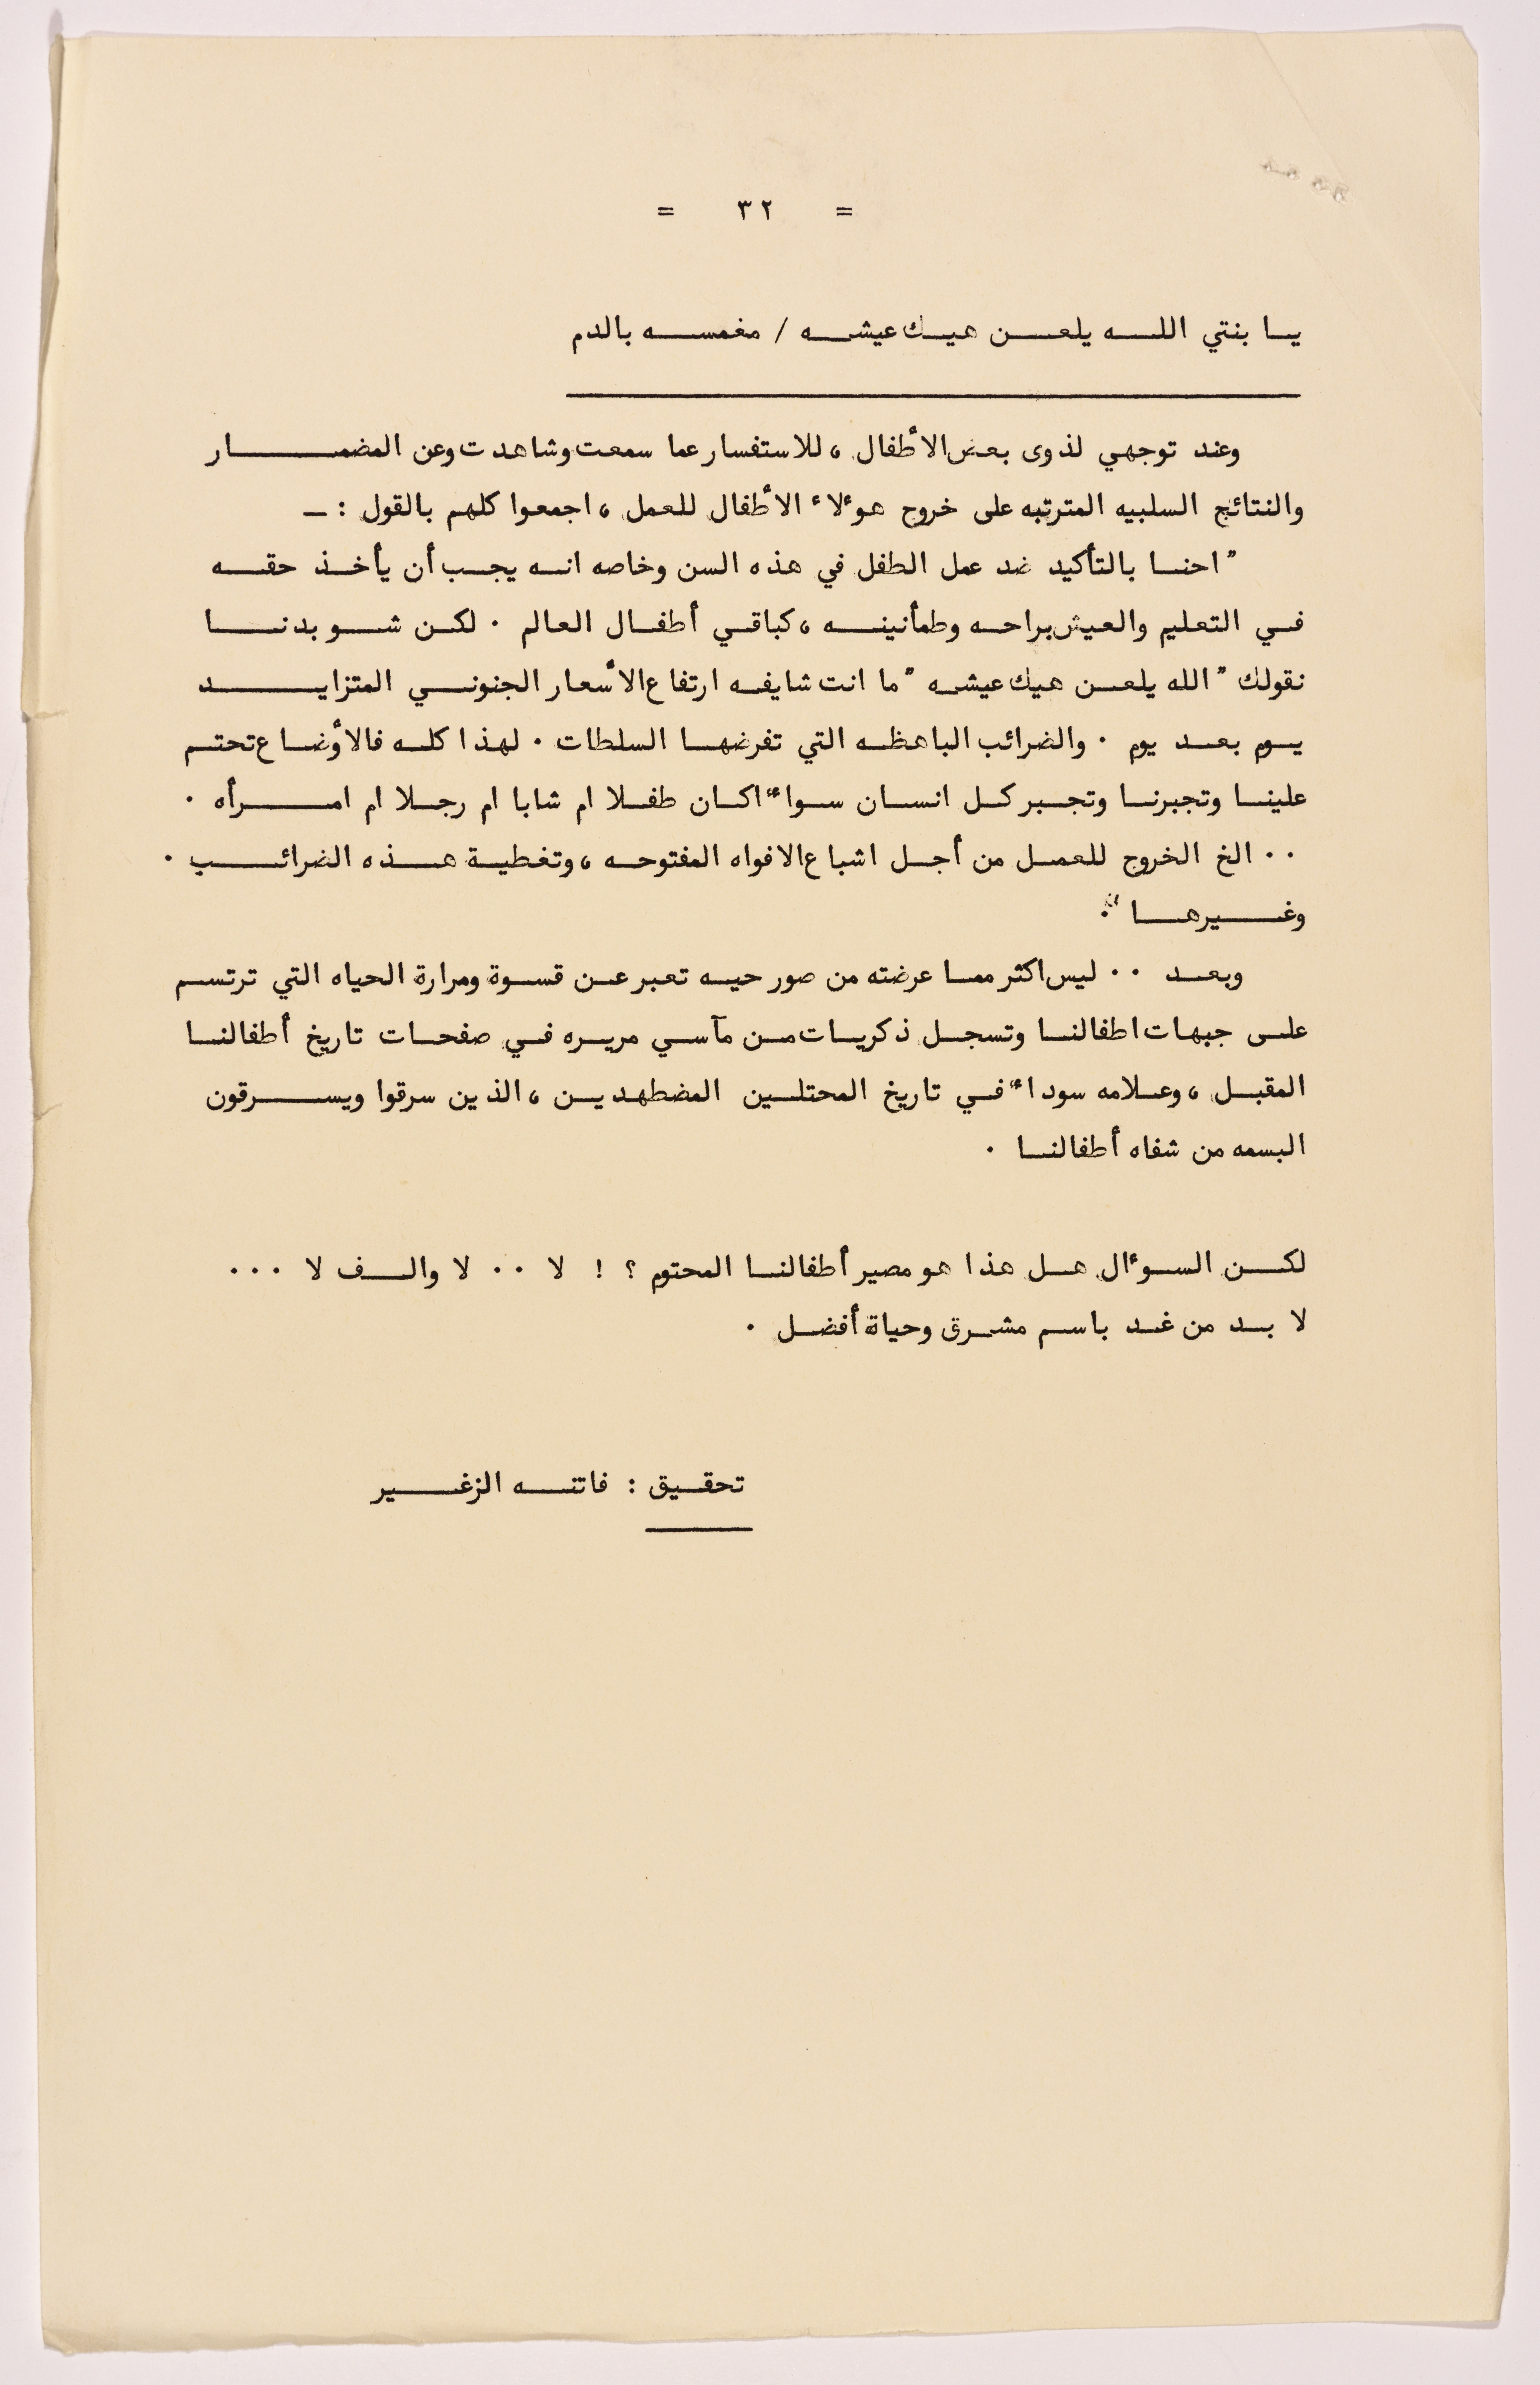 = ٣٢ =
يا بنتي الله يلعن هيك عيشه / مغمسه بالدم
وعند توجهي لذوى بعض الأطفال ، للاستفسار عما سمعت وشاهدت وعن المضار
والنتائج السلبيه المترتبه على خروج هؤلاء الأطفال للعمل ، اجمعوا كلهم بالقول : ـ
" احنا بالتأكيد ضد عمل الطفل في هذه السن وخاصه انه يجب أن يأخذ حقه
في التعليم والعيش براحه وطمأنينه ، كباقي أطفال العالم . لكن شو بدنا
نقولك " الله يلعن هيك عيشه " ما انت شايفه ارتفاع الأسعار الجنوني المتزايد
يوم بعد يوم . والضرائب الباهظه التي تفرضها السلطات . لهذا كله فالأوضاع تحتم
علينا وتجبرنا وتجبر كل انسان سواء اكان طفلا ام شابا ام رجلا ام امرأه .
.. الخ الخروج للعمل من أجل اشباع الافواه المفتوحه ، وتغطية هذه الضرائب .
وغيرها " .
وبعد .. ليس اكثر مما عرضته من صور حيه تعبر عن قسوة ومرارة الحياه التي ترتسم
على جبهات اطفالنا وتسجل ذكريات من مآسي مريره في صفحات تاريخ أطفالنا
المقبل ، وعلامه سوداء في تاريخ المحتلين المضطهدين ، الذين سرقوا ويسرقون
البسمه من شفاه أطفالنا .
لكن السؤال هل هذا هو مصير أطفالنا المحتوم ؟ ! لا .. لا والف لا ...
لا بد من غد باسم مشرق وحياة أفضل .
تحقيق : فاتنه الزغير